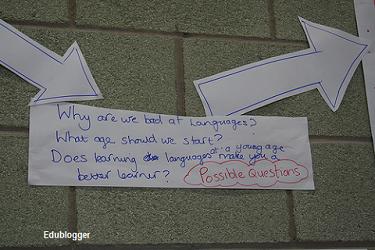 Why are we bad at Languages?
What age should we start?
Does learning languages at a young age make you a
better learner?
Possible Questions
Edublogger